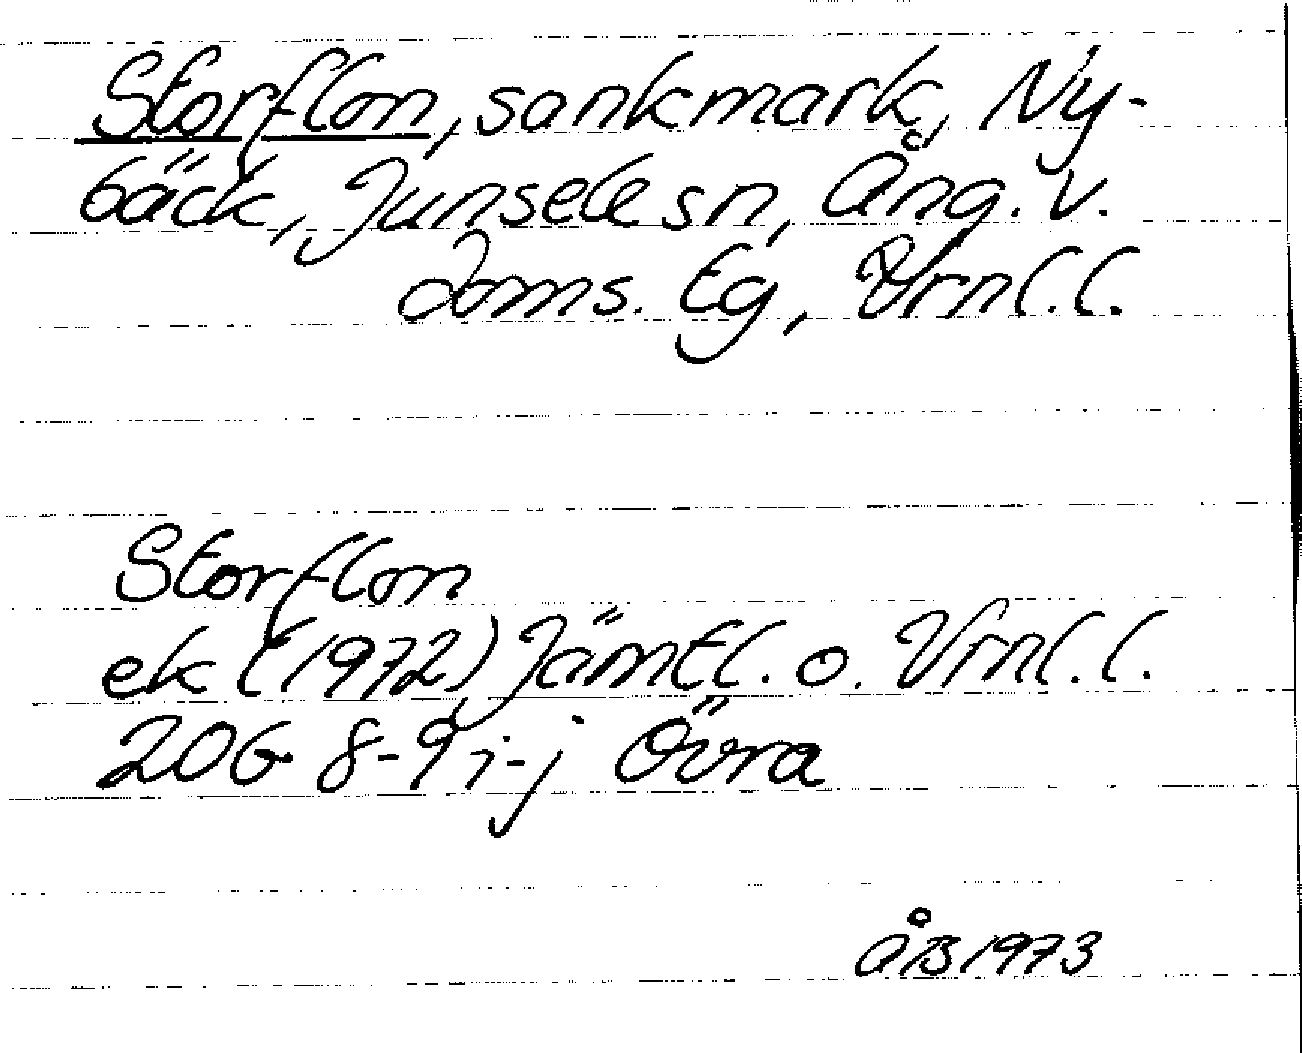 Storflon, sankmark, Ny-
bäck, Junsele sn, Ång. v.
doms. Eg, Vrnl. l.
Storflon
ek (1972) Jämtl. o. Vrnl. l.
20G 8-9 i-j Övra
ÅB 1973